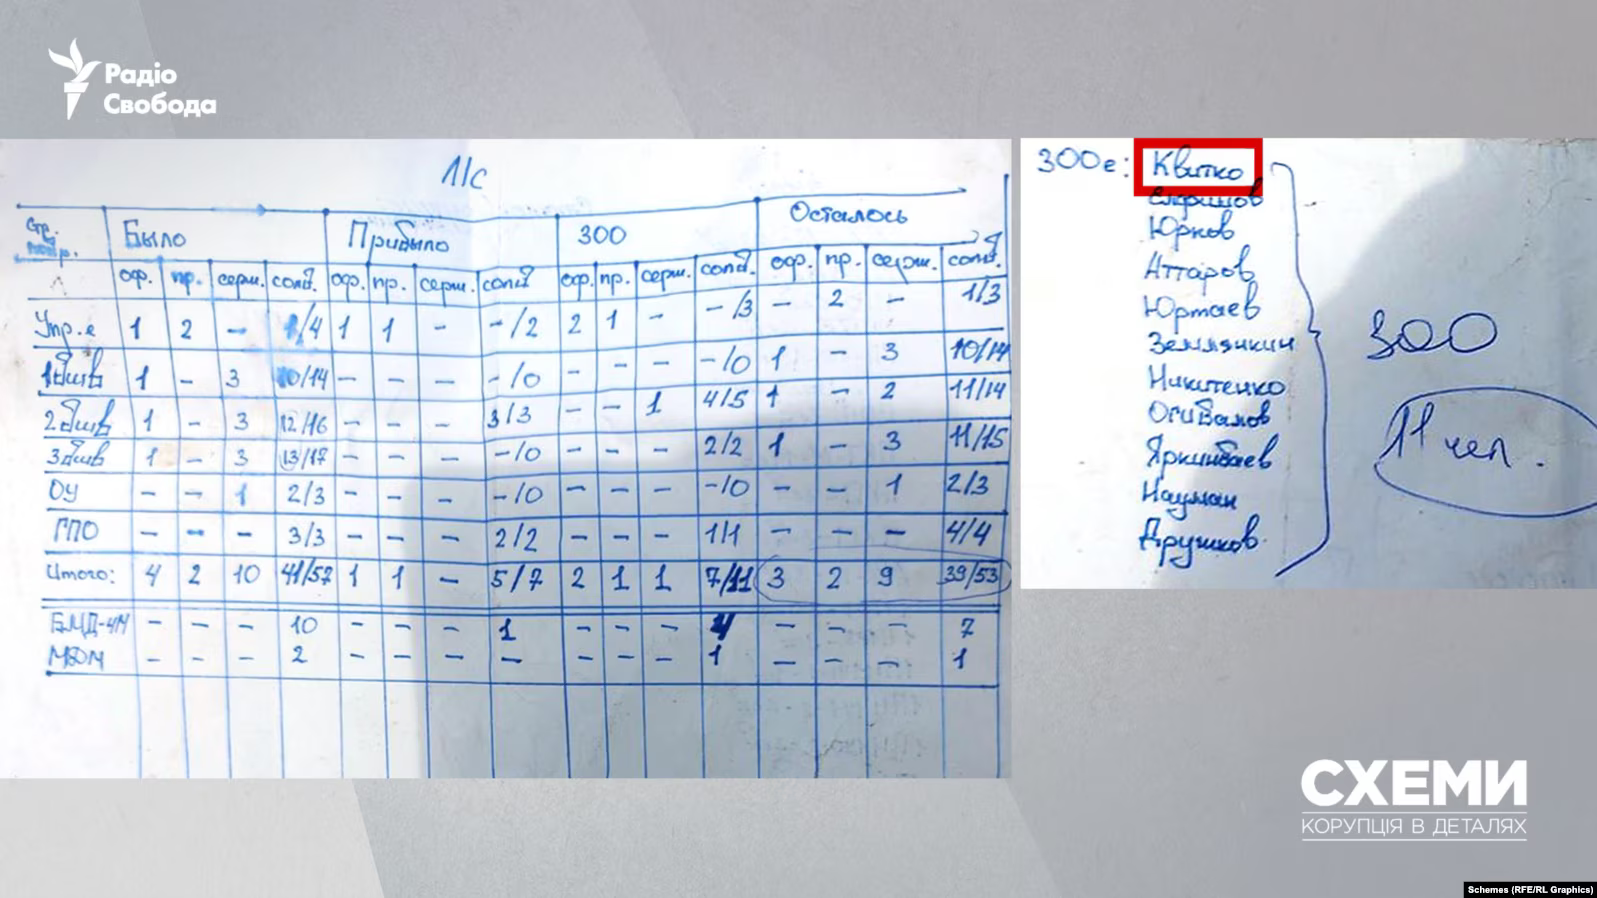 Радіо
Свобода
Л/С
Стр. подр. Было Прибыло 300 Осталось
оф. пр. серж. солд. оф. пр. серж. солд оф. пр. серж. солд. оф. пр. серж. солд.
Упр.е 1 2 – 1/4 1 1 – -/2 2 1 – -/3 – 2 – 1/3
1бшв 1 – 3 10/14 – – – -/0 – – – -/0 1 – 3 10/14
2бшв 1 – 3 12/16 – – – 3/3 – – 1 4/5 1 – 2 11/14
3бшв 1 – 3 13/17 – – – -/0 – – – 2/2 1 – 3 11/15
ОУ – – 1 2/3 – – – -/0 – – – -/0 – – 1 2/3
ГПО – – – 3/3 – – – 2/2 – – – 1/1 – – – 4/4
Итого: 4 2 10 41/57 1 1 – 5/7 2 1 1 7/11 3 2 9 39/53
БМД-4М – – – 10 – – – 1 – – – 4 – – – 7
МДМ – – – 2 – – – – – – – 1 – – – 1
300е: Квитко
Юрков
Аттаров
Юртаев
Землянкин
Никитенко
Огивалов
Яркинбаев
Науман
Друшков
300
11 чел.
СХЕМИ
КОРУПЦІЯ В ДЕТАЛЯХ
Schemes (RFE/RL Graphics)